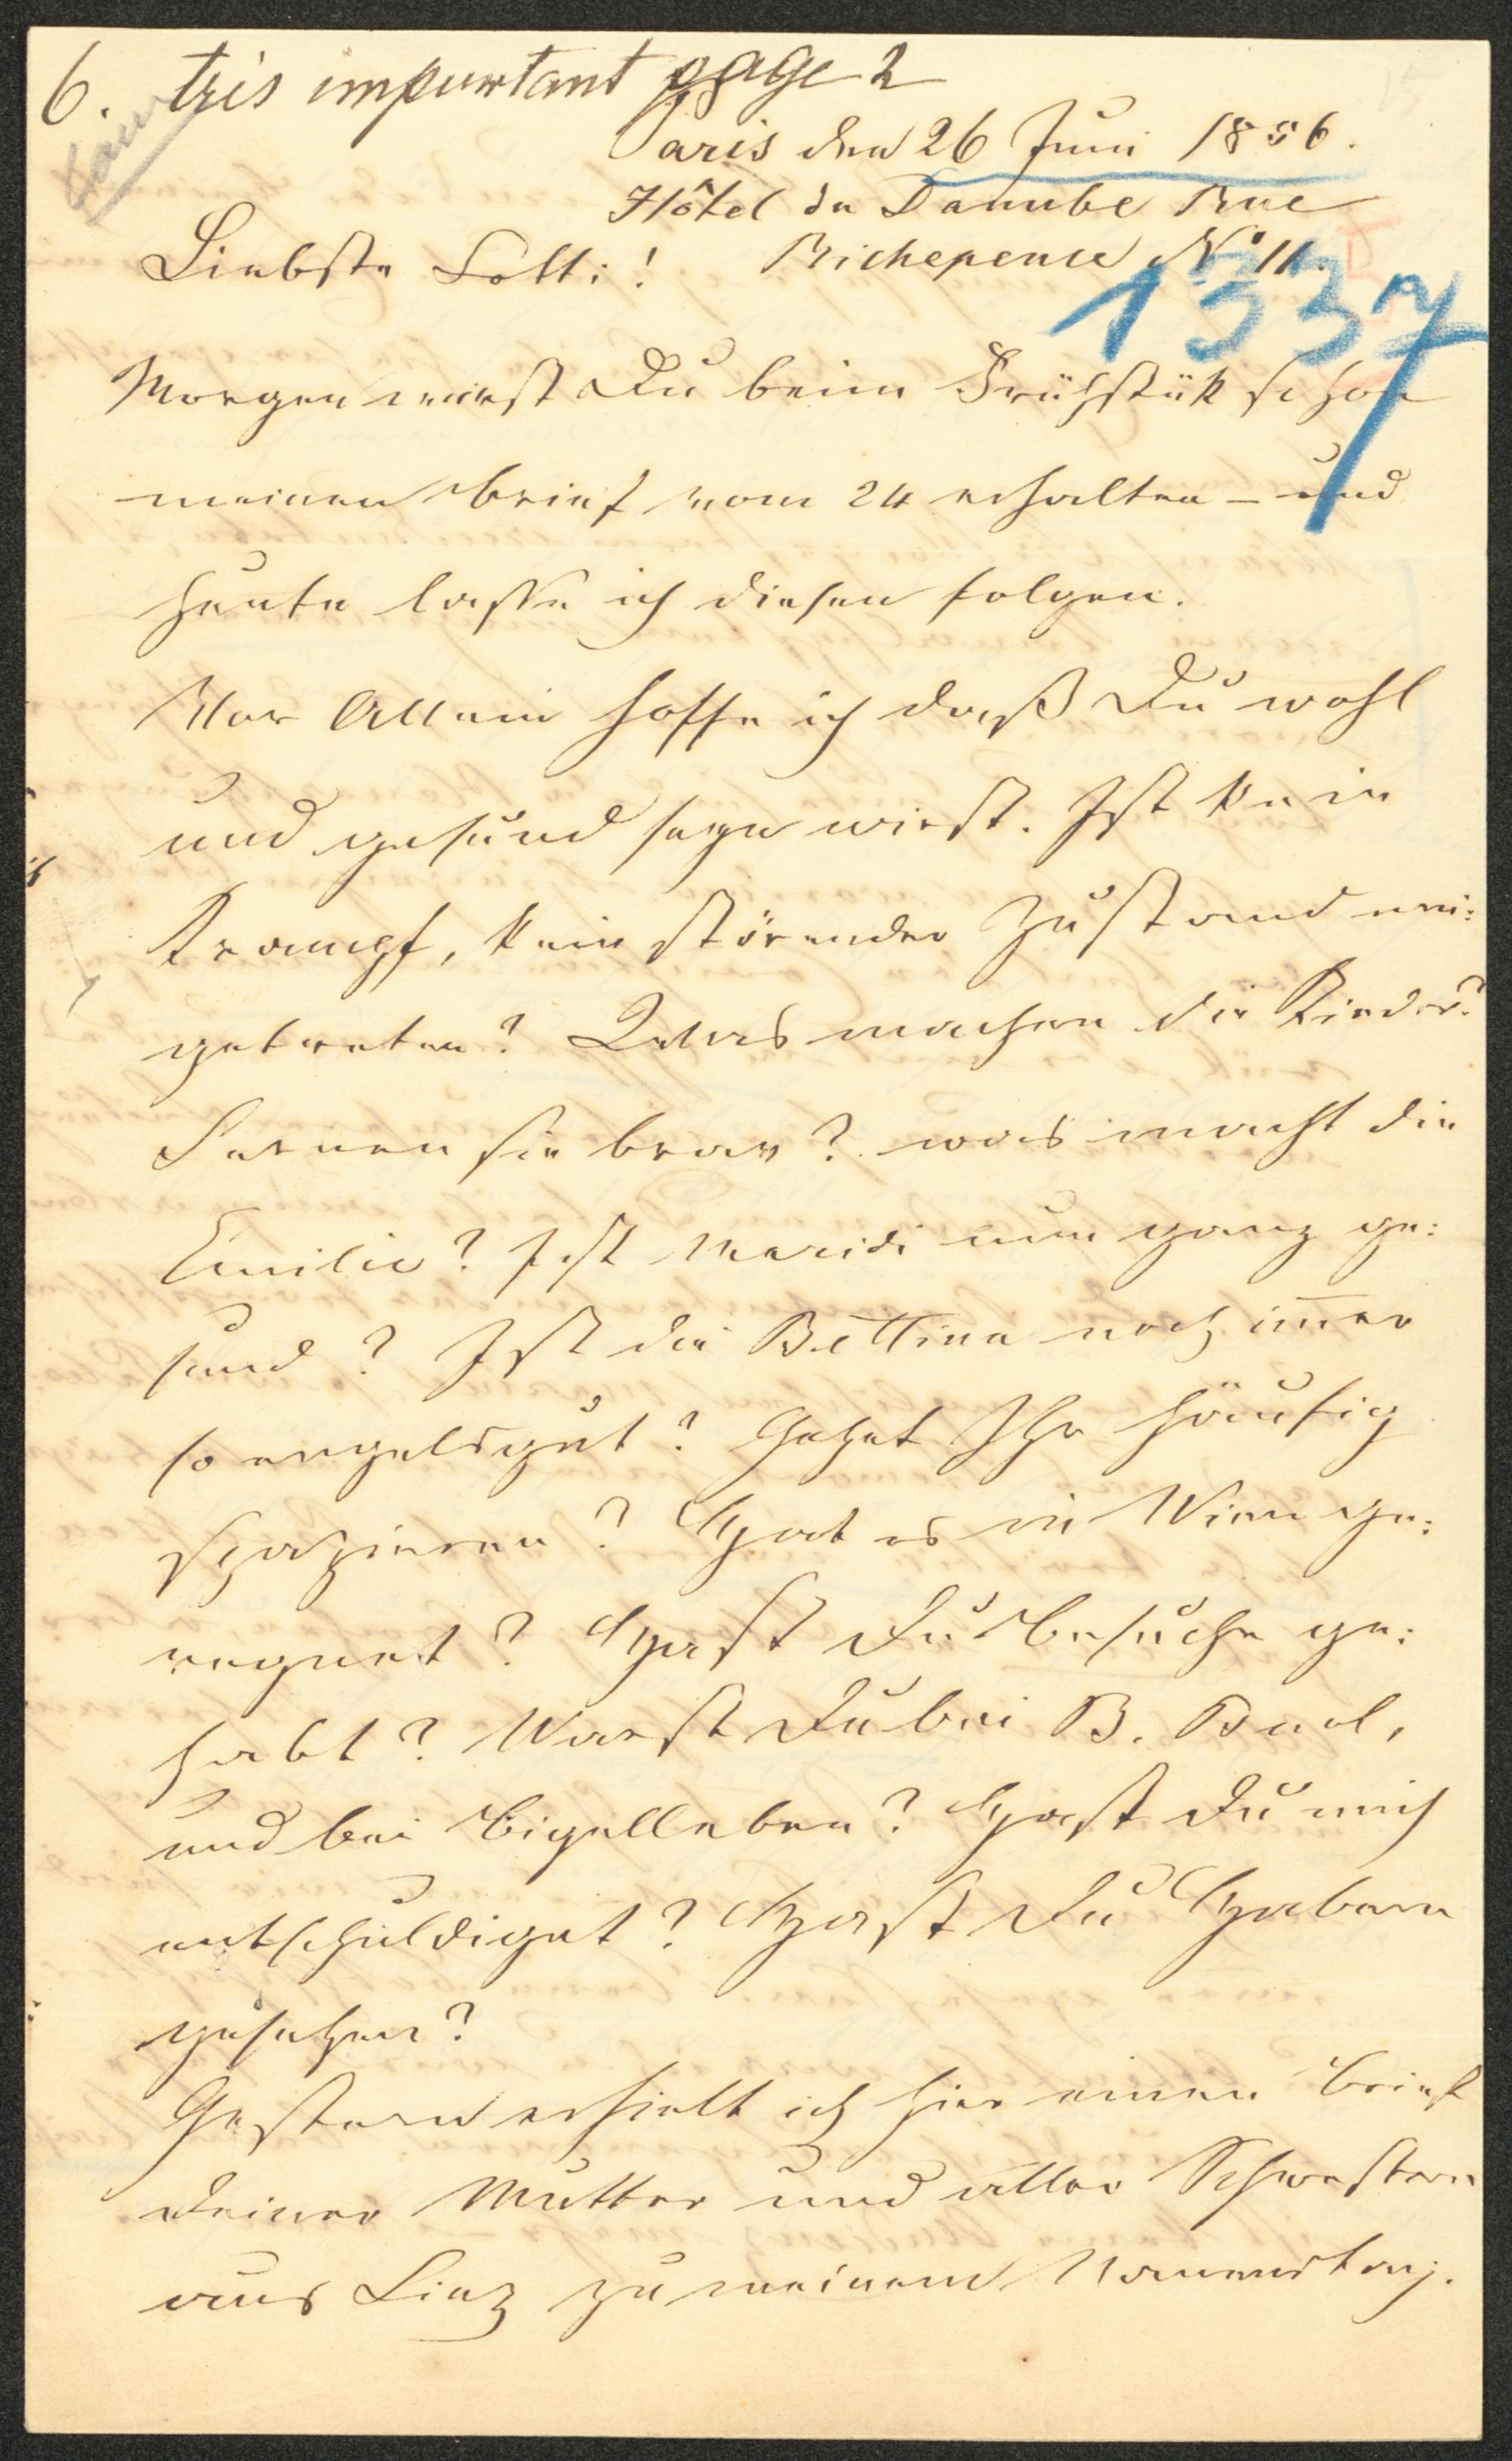 6. tris important page 2
Paris den 26 Juni 1856.
Hôtel du Danube Rue
Liebste Lotti! Richepence No 11.
1337
Morgen wirst Du beim Frühstük schon
meinen Brief vom 24 erhalten – und
heute lasse ich diesen folgen.
Vor Allem hoffe ich daß Du wohl
und gesund seyn wirst. Ist kein
Krampf, kein störender Zustand ein:
getreten? Was machen die Kinder?
Lernen sie brav? was macht die
Emilie? Ist Maridi nun ganz ge:
sund? Ist die Bettina noch im̄er
so engelsgut? Gehet Ihr häufig
spazieren? Hat es in Wien ge:
regnet? Hast Du Besuche ge:
habt? Warst Du bei B. Buol,
und bei Bigelleben? Hast Du mich
entschuldiget? Hast Du Gabern
gesehen?
Gestern erhielt ich hier einen Brief
Deiner Mutter und aller Schwestern
aus Linz zu meinem Namenstag.